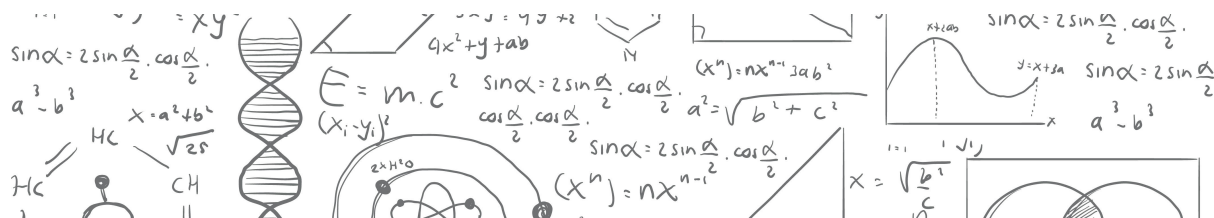 = xy
sinα = 2 sin α/2 . cos α/2 .
a³ - b³
x = a² + b²
√25
HC
HC
CH
4x² + y + ab
E = m.c²
(xᵢ - yᵢ)²
2xH²O
sinα = 2 sin α/2 . cos α/2 .
cos α/2 . cos α/2 .
sinα = 2 sin α/2 . cos α/2 .
(xⁿ) = nxⁿ⁻¹
(xⁿ) = nxⁿ⁻¹ 3ab²
a² = √b² + c²
x+2ab
y=x+3a
x
x =
sinα = 2 sin α/2 . cos α/2 .
sinα = 2 sin α/2
a³ - b³